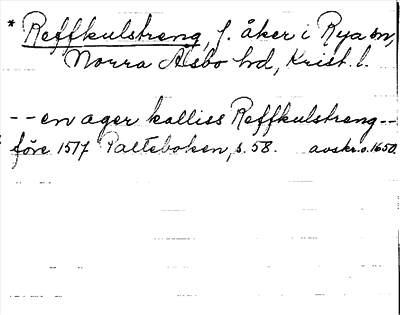 * Reffkulstreng, f. åker i Rya sn,
Norra Åsbo hd, Krist. l.
-- en ager kalliss Reffkulstreng --
före 1517 Palteboken, s. 58. avskr. o. 1650.